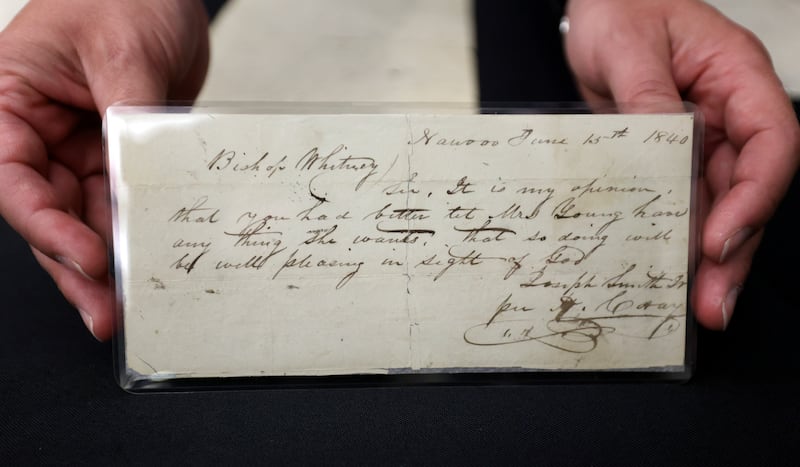 Nauvoo June 15th 1840
Bishop Whitney
Sir, It is my opinion,
that you had better let Mrs Young have
any thing she wants, that so doing will
be well pleasing in sight of God
Joseph Smith Jr
per H. Coray